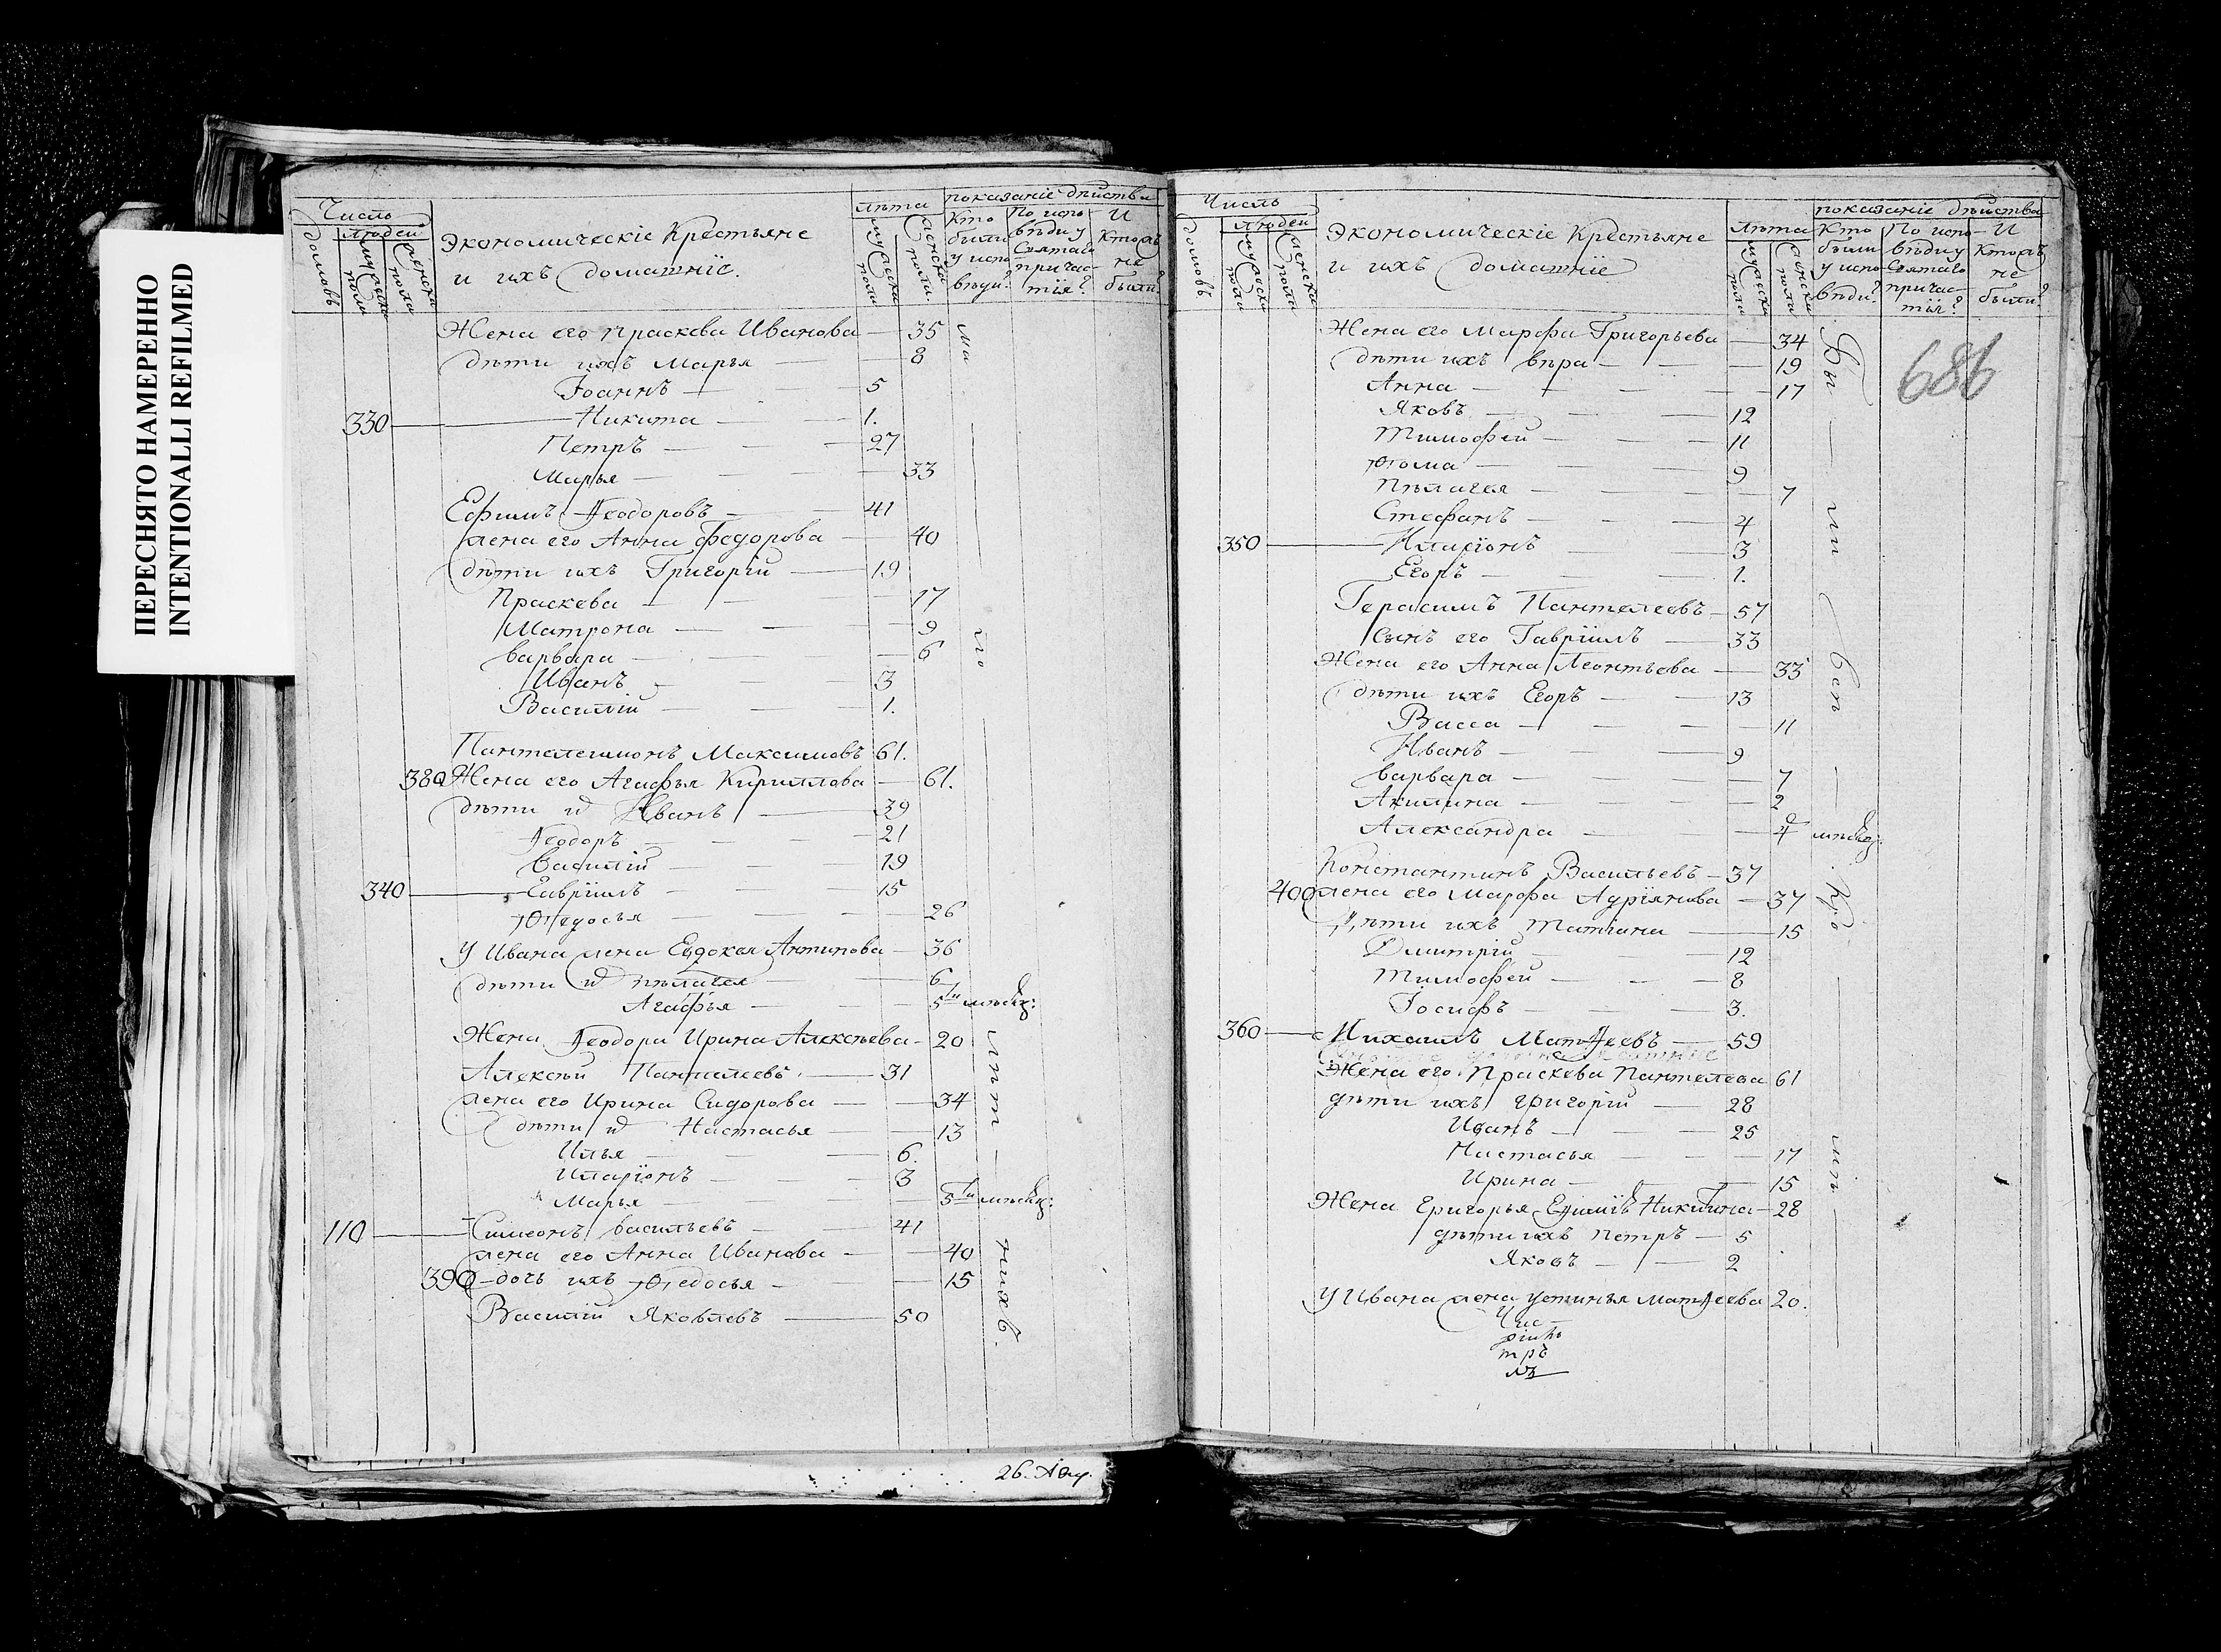 ПЕРЕСНЯТО НАМЕРЕННО
INTENTIONALLI REFILMED
Число
домовъ
людей
мужеска пола
женска пола
Экономическіе Крестьяне
и ихъ домашніе.
лѣта
мужеска пола
женска пола.
показаніе дѣйства
Кто были у исповѣди?
По исповѣди у Святаго причастія?
И Кто изъ не были?
Жена его Праскева Иванова — 35
дѣти ихъ Марья — 8
Іоаннъ — 5
330 — Никита — 1.
Петръ — 27
Марья — 33
Ефимъ Ѳеодоровъ — 41
жена его Анна Федорова — 40
дѣти ихъ Григорій — 19
Праскева — 17
Матрона — 9
Варвара — 6
Иванъ — 3
Василій — 1.
Пантелеимонъ Максимовъ 61.
380 Жена его Агафья Кириллова — 61.
дѣти их Иванъ — 39
Ѳеодоръ — 21
Василій — 19
340 — Гавріилъ — 15
Ѳедосья — 26
У Ивана жена Евдокея Антипова — 36
дѣти их Пелагея — 6
Агафья — 5ти мѣсяц:
Жена Ѳеодора Ирина Алексѣева — 20
Алексѣй Пантелеевъ — 31
жена его Ирина Сидорова — 34
дѣти их Настасья — 13
Илья — 6.
Иларіонъ — 3
Марья — 5ти мѣсяц:
110 — Симеонъ Васильевъ — 41
жена его Анна Иванова — 40
390 — дочь ихъ Ѳедосья — 15
Василій Яковлевъ — 50
ма
го
лѣт
нихъ.
26. Аву.
Число
домовъ
людей
мужеска пола
женска пола
Экономическіе Крестьяне
и ихъ домашніе
лѣта
мужеска пола
женска пола
показаніе дѣйства
Кто были у исповѣди?
По исповѣди у Святаго причастія?
И Кто изъ не были?
686
Жена его Марфа Григорьева — 34
дѣти ихъ Вѣра — 19
Анна — 17
Яковъ — 12
Тимофей — 11
Ѳома — 9
Пелагея — 7
Стефанъ — 4
350 — Иларіонъ — 3
Егоръ — 1.
Герасимъ Пантелеевъ — 57
Сынъ его Гавріилъ — 33
Жена его Анна Леонтьева — 33
дѣти ихъ Егоръ — 13
Васса — 11
Иванъ — 9
Варвара — 7
Акилина — 2
Александра — 4 мѣсяц:
Константинъ Васильевъ — 37
400 жена его Марфа Адріянова — 37
дѣти ихъ Татіана — 15
Димитрій — 12
Тимофей — 8
Іосифъ — 3.
360 — Михаилъ Матѳеевъ — 59
Жена его Праскева Пантелева 61
дѣти ихъ Григорій — 28
Иванъ — 25
Настасья — 17
Ирина — 15
Жена Григорья Никитина — 28
дѣти ихъ Петръ — 5
Яковъ — 2
У Ивана жена Устинья Матѳеева 20.
Бы
ли
вси
Кро